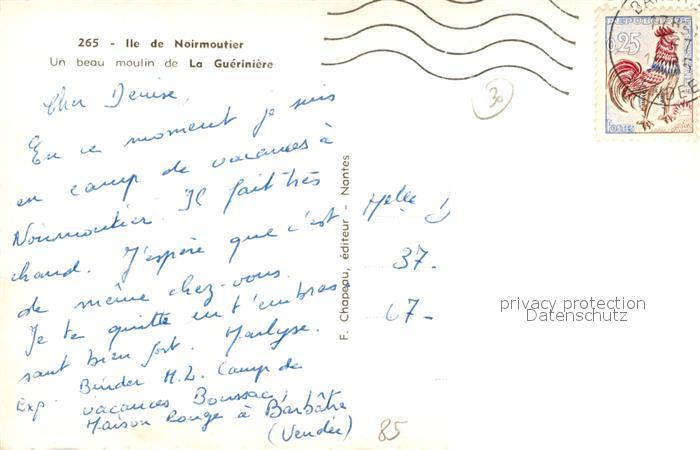 265 - Ile de Noirmoutier
Un beau moulin de La Guérinière
Cher Denise,
En ce moment je suis
en camp de vacances à
Noirmoutier. Il fait très
chaud. J'espère que c'est
de même chez-vous.
Je te quitte en t'embras
sant bien fort. Marlyse.
Exp. Binder M.L. Camp de
vacances Boussac,
Maison Rouge à Barbâtre
(Vendée)
85
F. Chapeau, éditeur - Nantes
30
REPUBLIQUE
0,25
POSTES
Melle D
37.
67-
privacy protection
Datenschutz